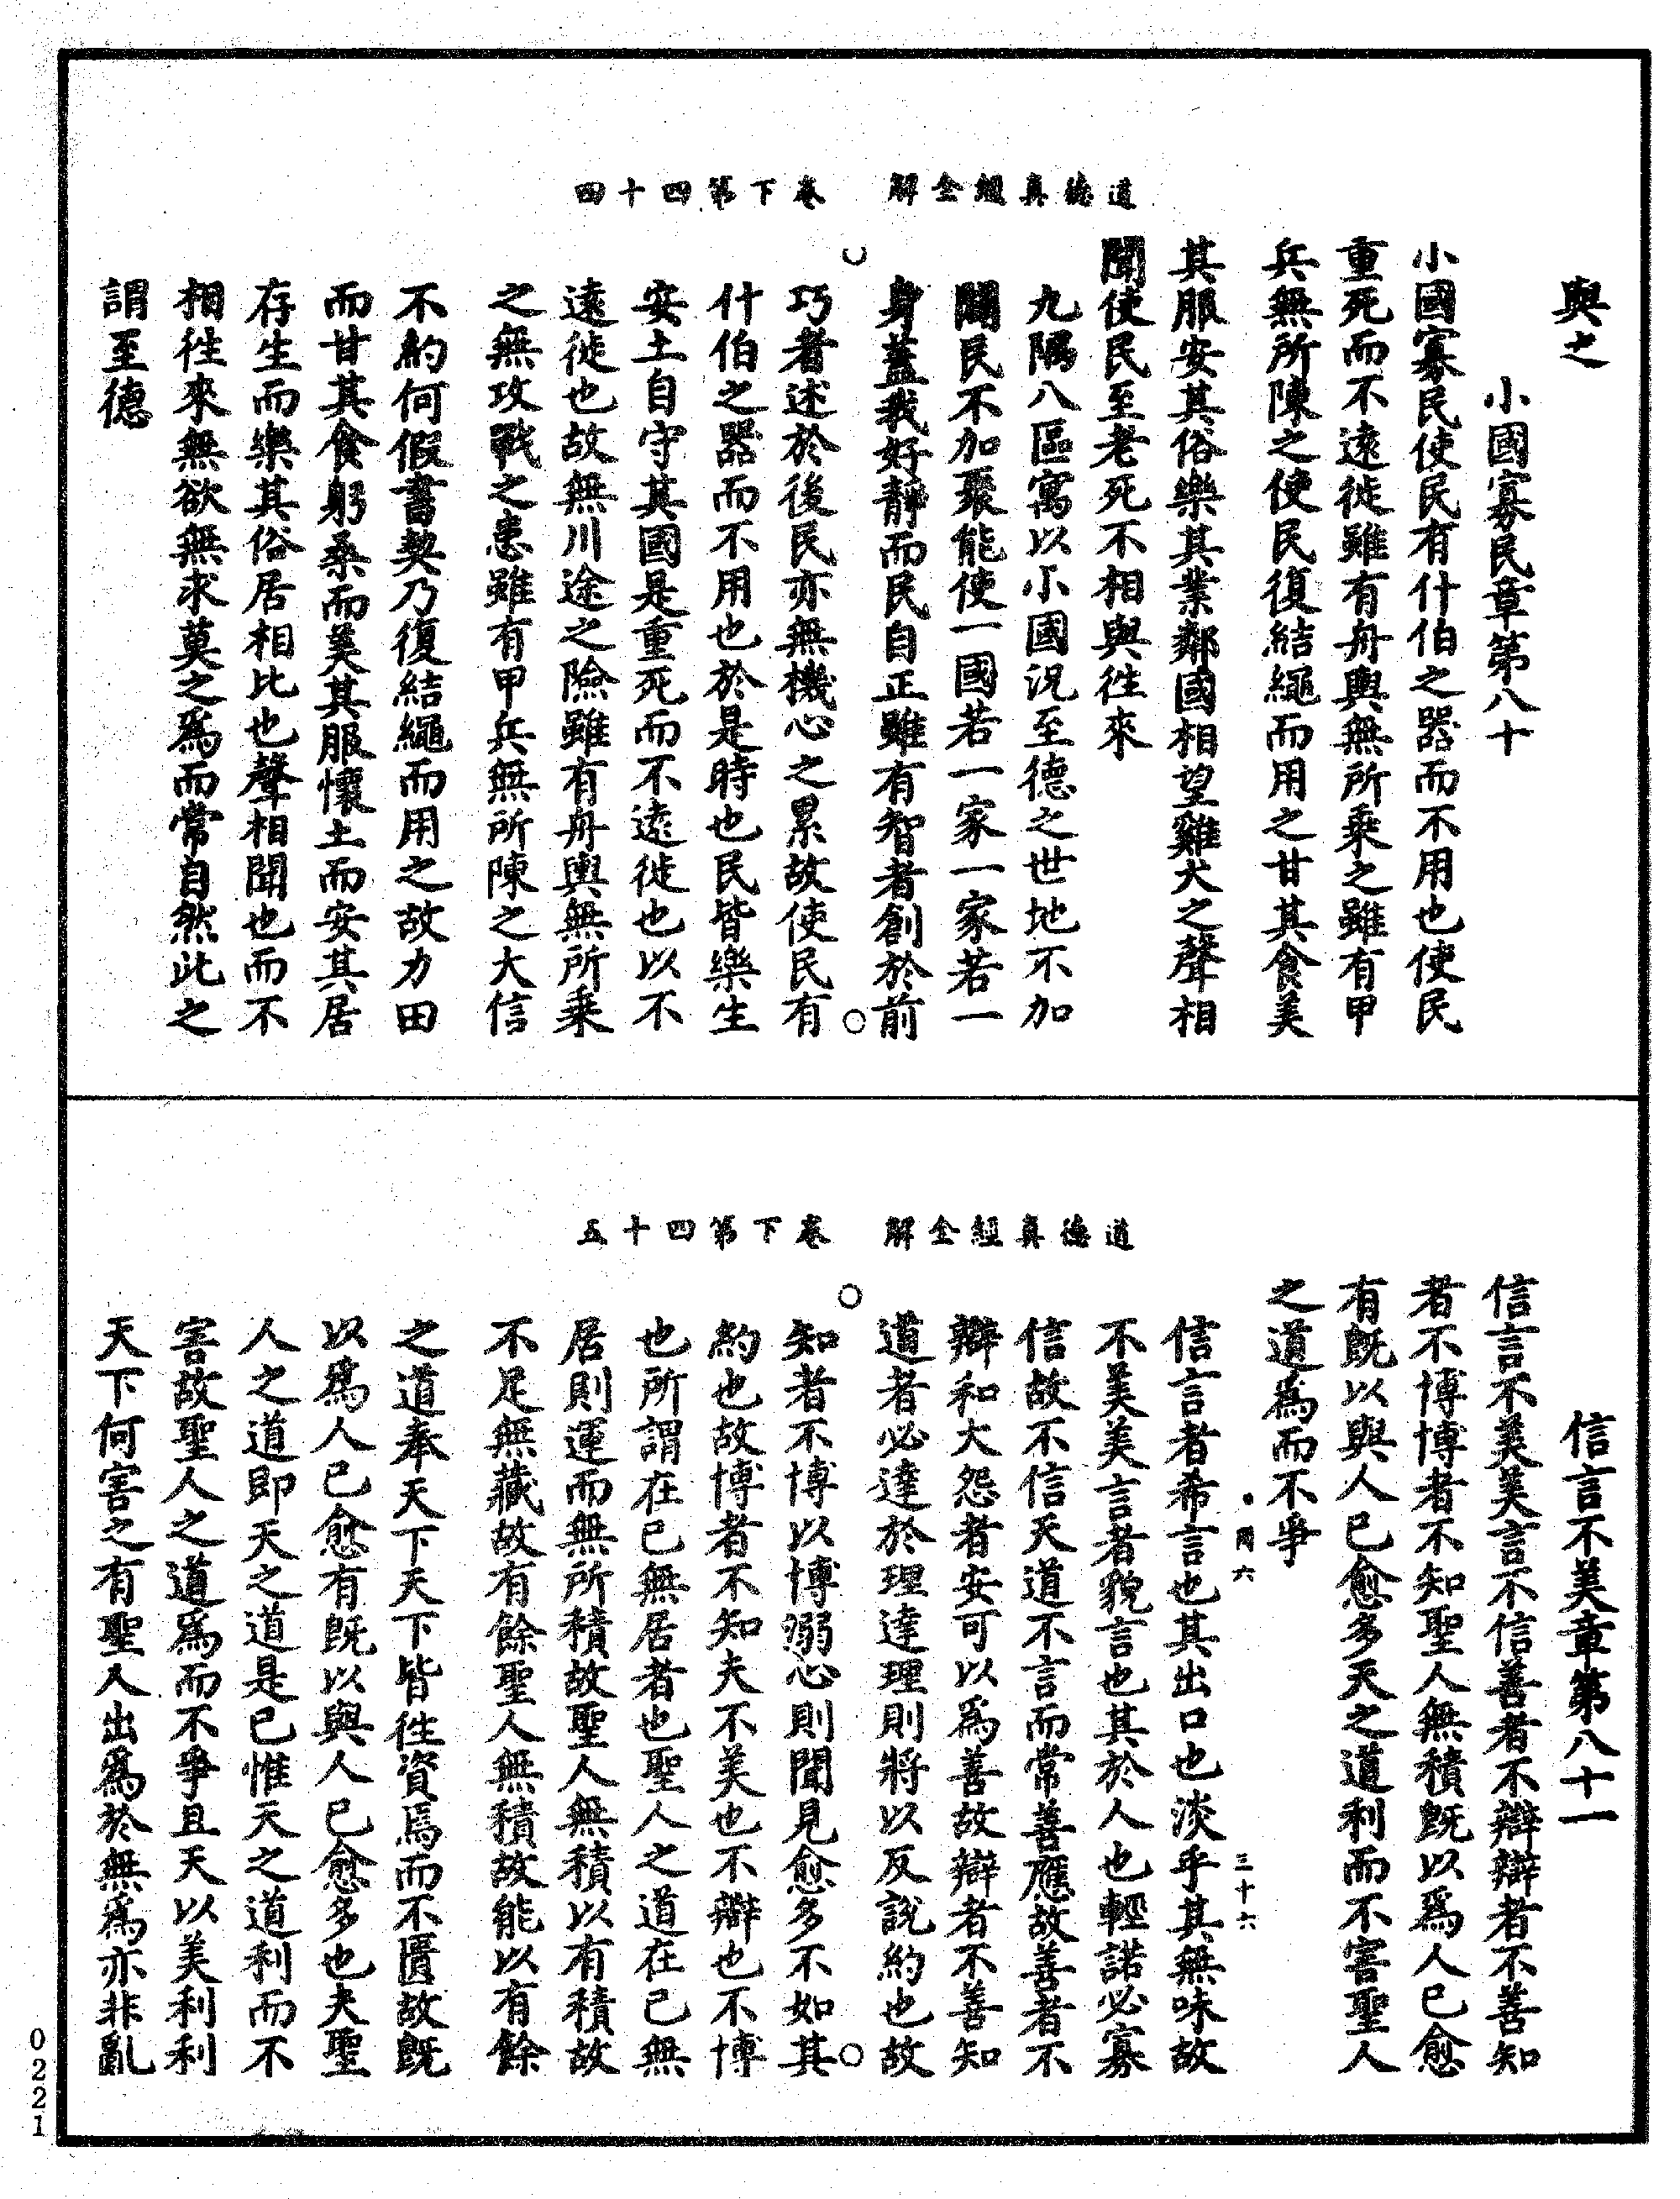 道德真經全解　卷下第四十四
與之
小國寡民章第八十
小國寡民使民有什伯之器而不用也使民
重死而不遠徙雖有舟輿無所乘之雖有甲
兵無所陳之使民復結繩而用之甘其食美
其服安其俗樂其業鄰國相望雞犬之聲相
聞使民至老死不相與徃來
九隅八區寓以小國況至德之世地不加
闢民不加聚能使一國若一家一家若一
身蓋我好靜而民自正雖有智者創於前
巧者述於後民亦無機心之累故使民有
什伯之器而不用也於是時也民皆樂生
安土自守其國是重死而不遠徙也以不
遠徙也故無川途之險雖有舟輿無所乘
之無攻戰之患雖有甲兵無所陳之大信
不約何假書契乃復結繩而用之故力田
而甘其食躬桑而美其服懷土而安其居
存生而樂其俗居相比也聲相聞也而不
相徃來無欲無求莫之為而常自然此之
謂至德
道德真經全解　卷下第四十五
信言不美章第八十一
信言不美美言不信善者不辯辯者不善知
者不博博者不知聖人無積既以為人已愈
有既以與人已愈多天之道利而不害聖人
之道為而不爭
六　三十六
信言者希言也其出口也淡乎其無味故
不美美言者貌言也其於人也輕諾必寡
信故不信天道不言而常善應故善者不
辯和大怨者安可以為善故辯者不善知
道者必達於理達理則將以反說約也故
知者不博以博溺心則聞見愈多不如其
約也故博者不知夫不美也不辯也不博
也所謂在已無居者也聖人之道在已無
居則運而無所積故聖人無積以有積故
不足無藏故有餘聖人無積故能以有餘
之道奉天下天下皆徃資焉而不匱故既
以為人已愈有既以與人已愈多也夫聖
人之道即天之道是已惟天之道利而不
害故聖人之道為而不爭且天以美利利
天下何害之有聖人出為於無為亦非亂
0221